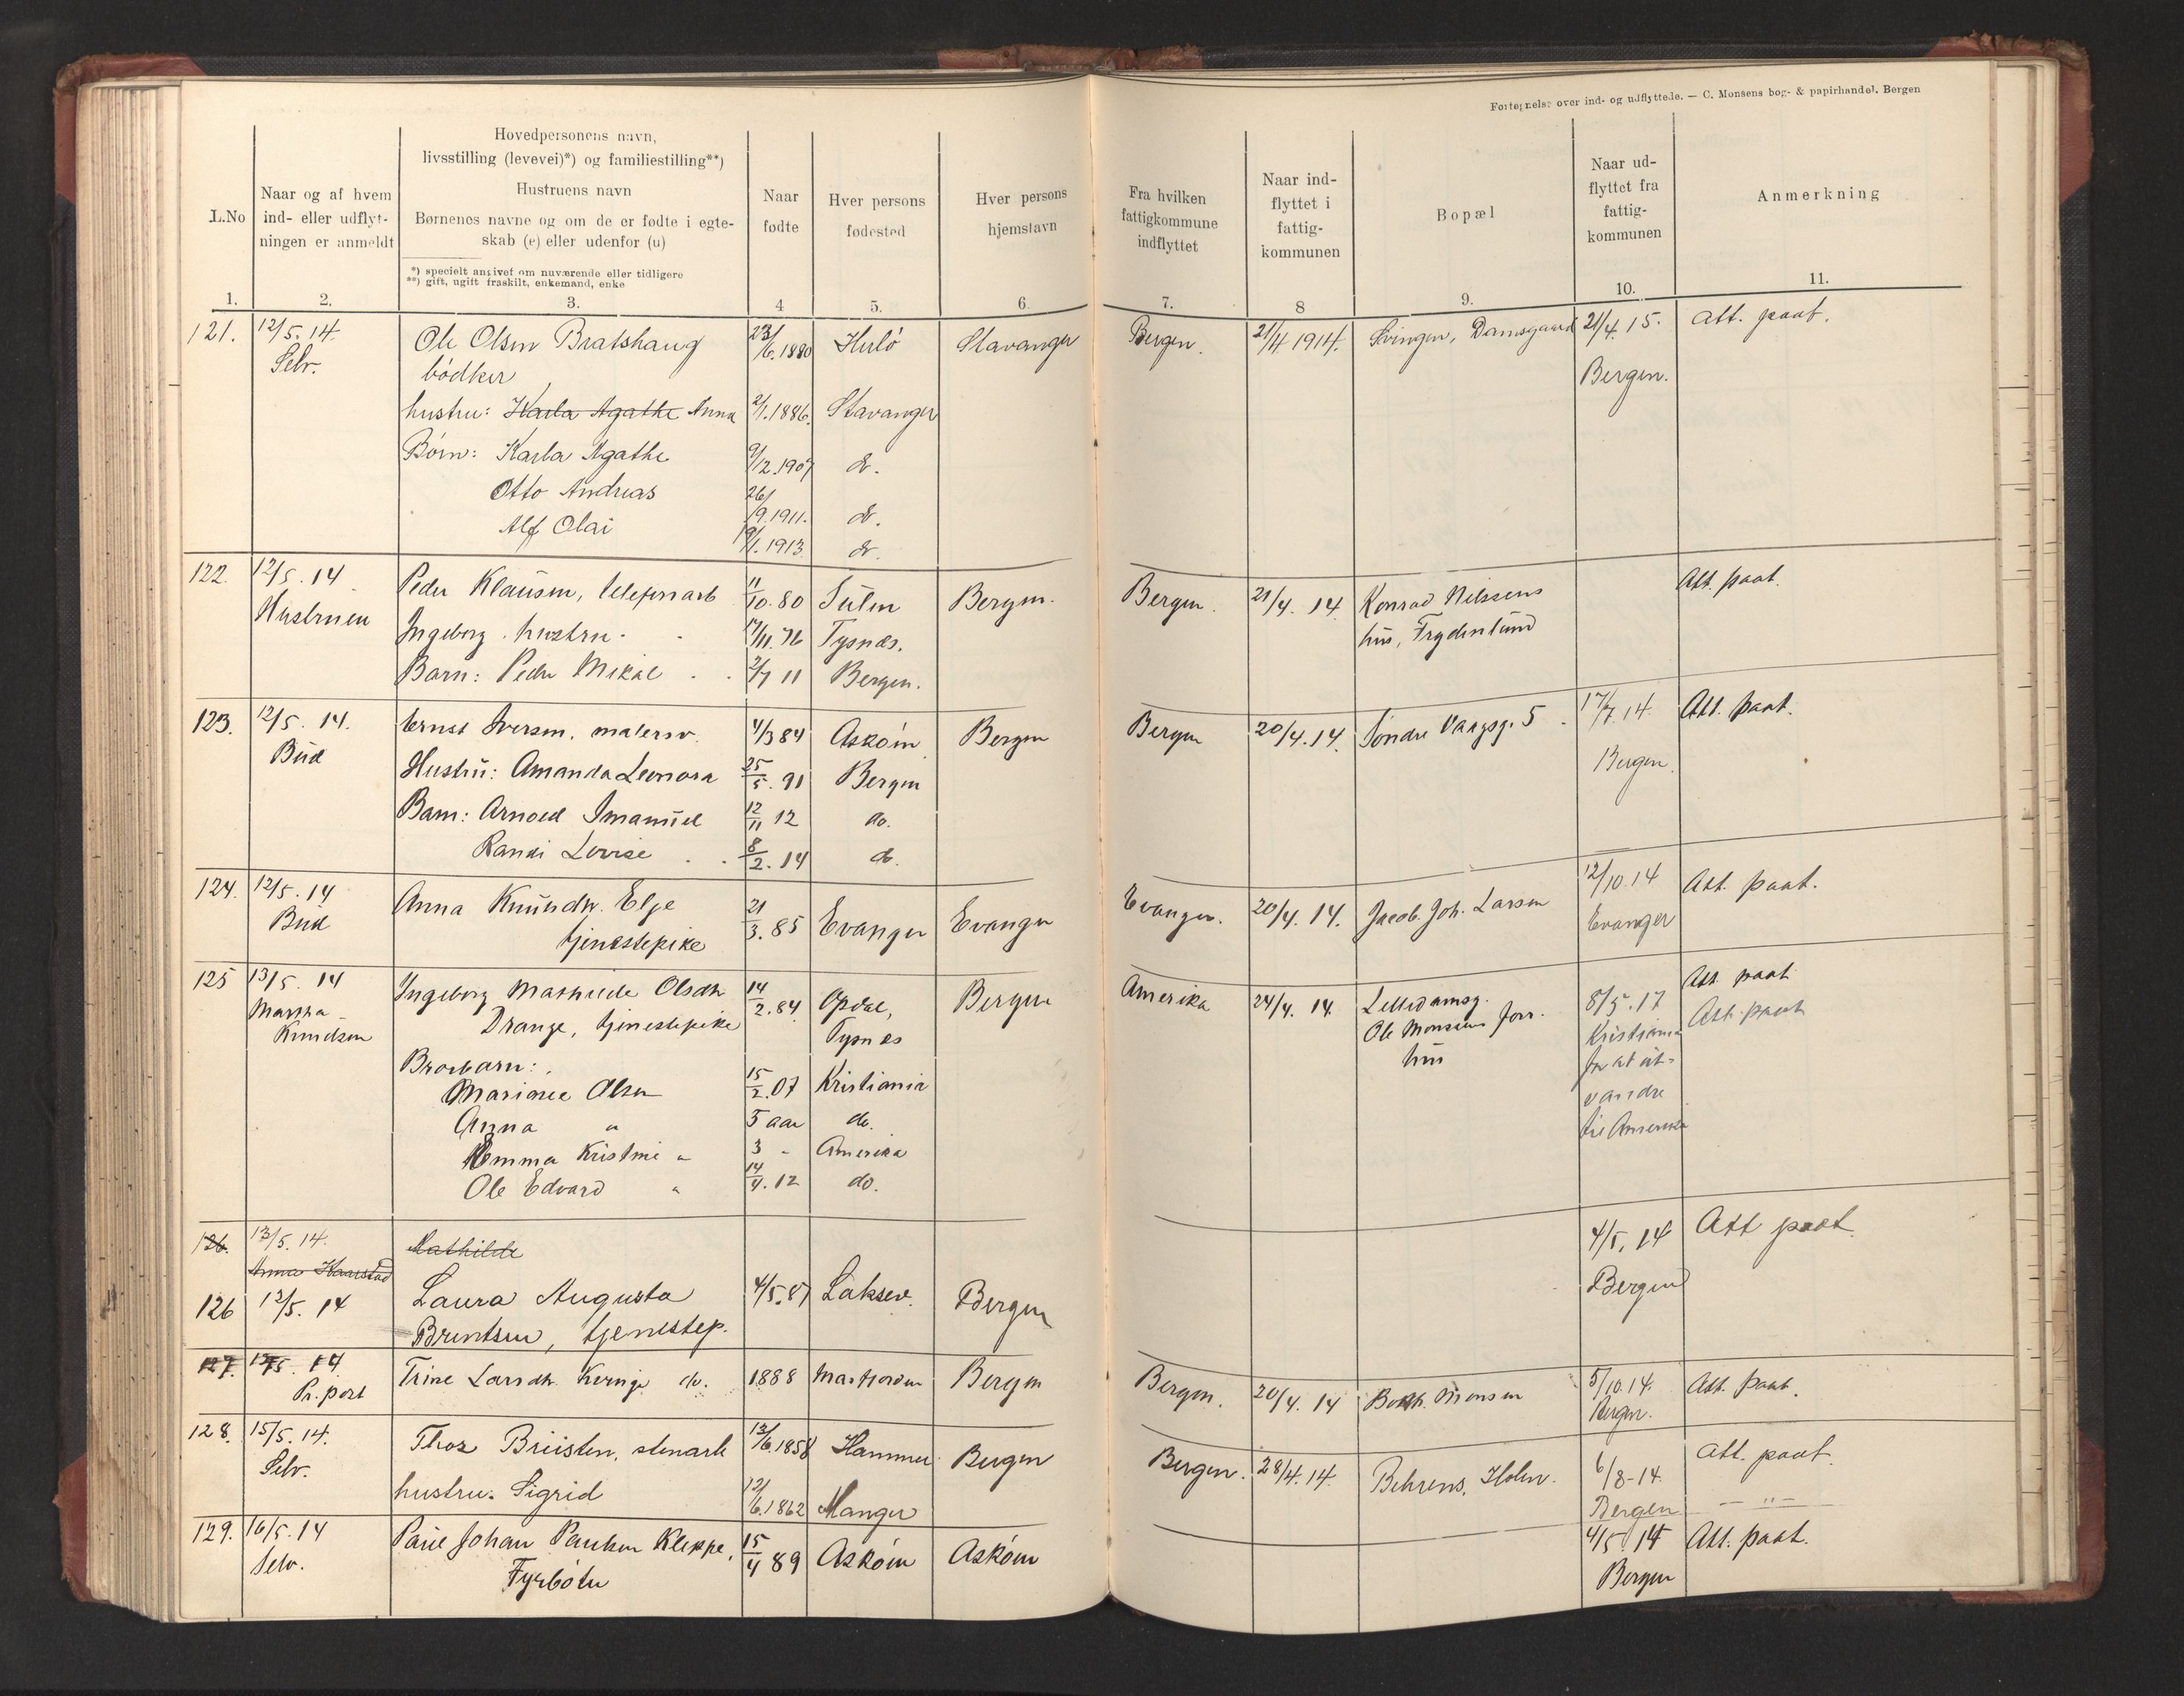 Fortegnelse over ind- og udflyttede. — C. Monsens bog- & papirhandel. Bergen
L.No
Naar og af hvem
ind- eller udflyt-
ningen er anmeldt
Hovedpersonens navn,
livsstilling (levevei)*) og familiestilling**)
Hustruens navn
Børnenes navne og om de er fødte i egte-
skab (e) eller udenfor (u)
*) specielt angivet om nuværende eller tidligere
**) gift, ugift fraskilt, enkemand, enke
Naar
fødte
Hver persons
fødested
Hver persons
hjemstavn
Fra hvilken
fattigkommune
indflyttet
Naar ind-
flyttet i
fattig-
kommunen
Bopæl
Naar ud-
flyttet fra
fattig-
kommunen
Anmerkning
1. 2. 3. 4 5. 6. 7. 8 9. 10. 11.
121. 12/5. 14. Ole Olsen Bratshaug 23/6. 1880 Herlö Stavanger Bergen. 21/4 1914. Svingen, Damsgaard 21/4. 15. Att. paat.
Selv. bödker Bergen.
hustru: Karla Agathe Anna 2/1. 1886. Stavanger
Börn: Karla Agathe 9/12. 1907 do.
Otto Andreas 26/9. 1911. do.
Alf Olai 19/1. 1913. do.
122. 12/5. 14 Peder Klausen, telefonarb 11/10. 80 Sulen Bergen. Bergen. 21/4. 14 Konrad Nilssens Att. paat.
Hustruen Ingeborg. hustru. 17/11. 76 Tysnæs. hus, Frydenlund
Barn: Peder Mikal 2/7 11 Bergen.
123. 12/5. 14. Ernst Iversen, malersv. 4/3 84 Asköen Bergen Bergen 20/4. 14. Söndre Vaagsg. 5 17/7. 14. Att. paat.
Bud Hustru: Amanda Leonora 25/5. 91 Bergen Bergen.
Barn: Arnold Imanuel 12/11 12 do.
Randi Lovise 8/2. 14 do.
124. 12/5. 14 Anna Knudsdtr. Elje 21/3. 85 Evanger Evanger Evanger. 20/4. 14. Jacob Joh. Larsen 12/10. 14 Att. paat.
Bud tjenestepike Evanger
125 13/5. 14 Ingeborg Mathilde Olsdtr 14/2. 84 Opdal, Bergen Amerika 24/4. 14. Lilledamsg. 8/5. 17 Att. paat.
Martha Drange, tjenestepike Tysnes Ole Monsens forr. Kristiania Att. paat.
Knudsen hus for at ut-
Brorbarn: vandre
Marimee Olsen 15/2. 07 Kristiania til Amerika
Anna " 5 aar do.
Emma Kristine " 3 " Amerika
Ole Edvard " 14/4. 12 do.
126. 13/5. 14. Mathilde 4/5. 14 Att paat.
Anna Haarstad Bergen
126 12/5. 14 Laura Augusta 4/5. 87 Laksev. Bergen
Berntsen, tjenestep.
127. 12/5. 14 Trine Larsdtr. Kvinge do. 1888 Masfjorden Bergen Bergen. 20/4. 14 Bernh. Monsen 5/10. 14. Att. paat.
Pr. post Bergen.
128. 15/5. 14. Thos Briisten, stenarb 12/6. 1858 Hammer Bergen Bergen. 28/4. 14. Behrens, Holen. 6/8-14. Att. paat.
Selv. hustru: Sigrid 12/6. 1862 Manger Bergen — " —
129. 16/5. 14 Paul Johan Paulsen Kleppe, 15/4 89 Asköen Asköen 4/5. 14 Att. paat.
Selv. Fyrböter Bergen